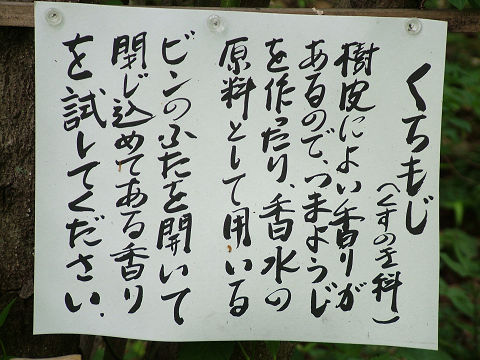 くちもじ
(くすのき科)
樹皮によい香りが
あるので、つまようじ
を作ったり、香水の
原料として用いる
ビンのふたを開いて
閉じ込めてある香り
を試してください.